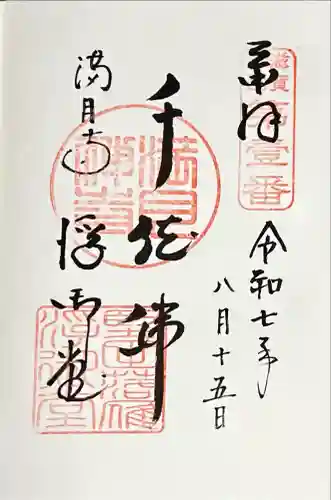 奉拝
滋賀
第壹番
令和七年
八月十五日
千体佛
満月寺
浮御堂